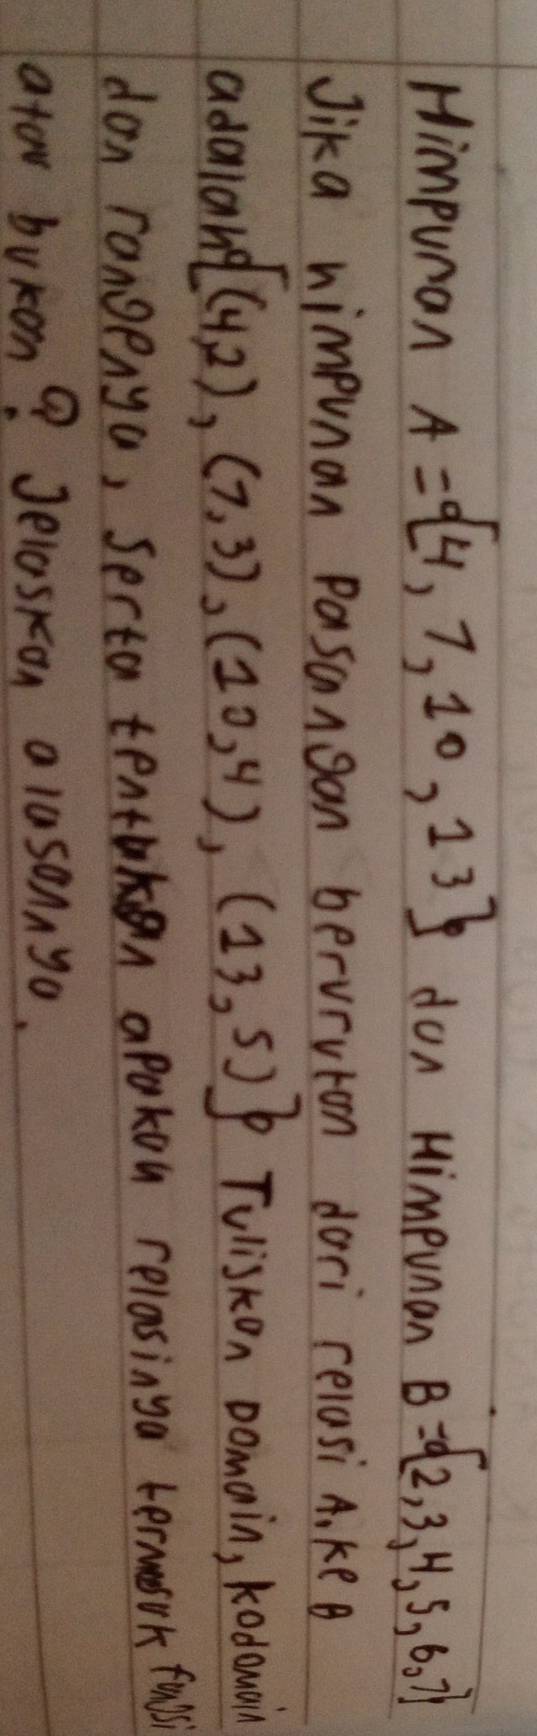 Himpunan A = {4, 7, 10, 13} dan Himpunan B = {2,3,4,5,6,7}
Jika himpunan Pasangan berurutan dari relasi A, ke B
adalah {(4,2), (7,3), (10,4), (13,5)} Tuliskan Domain, kodomain
dan rangenya, Serta tentukan apakah relasinya termasuk fungsi
atau bukan? Jelaskan alasannya.